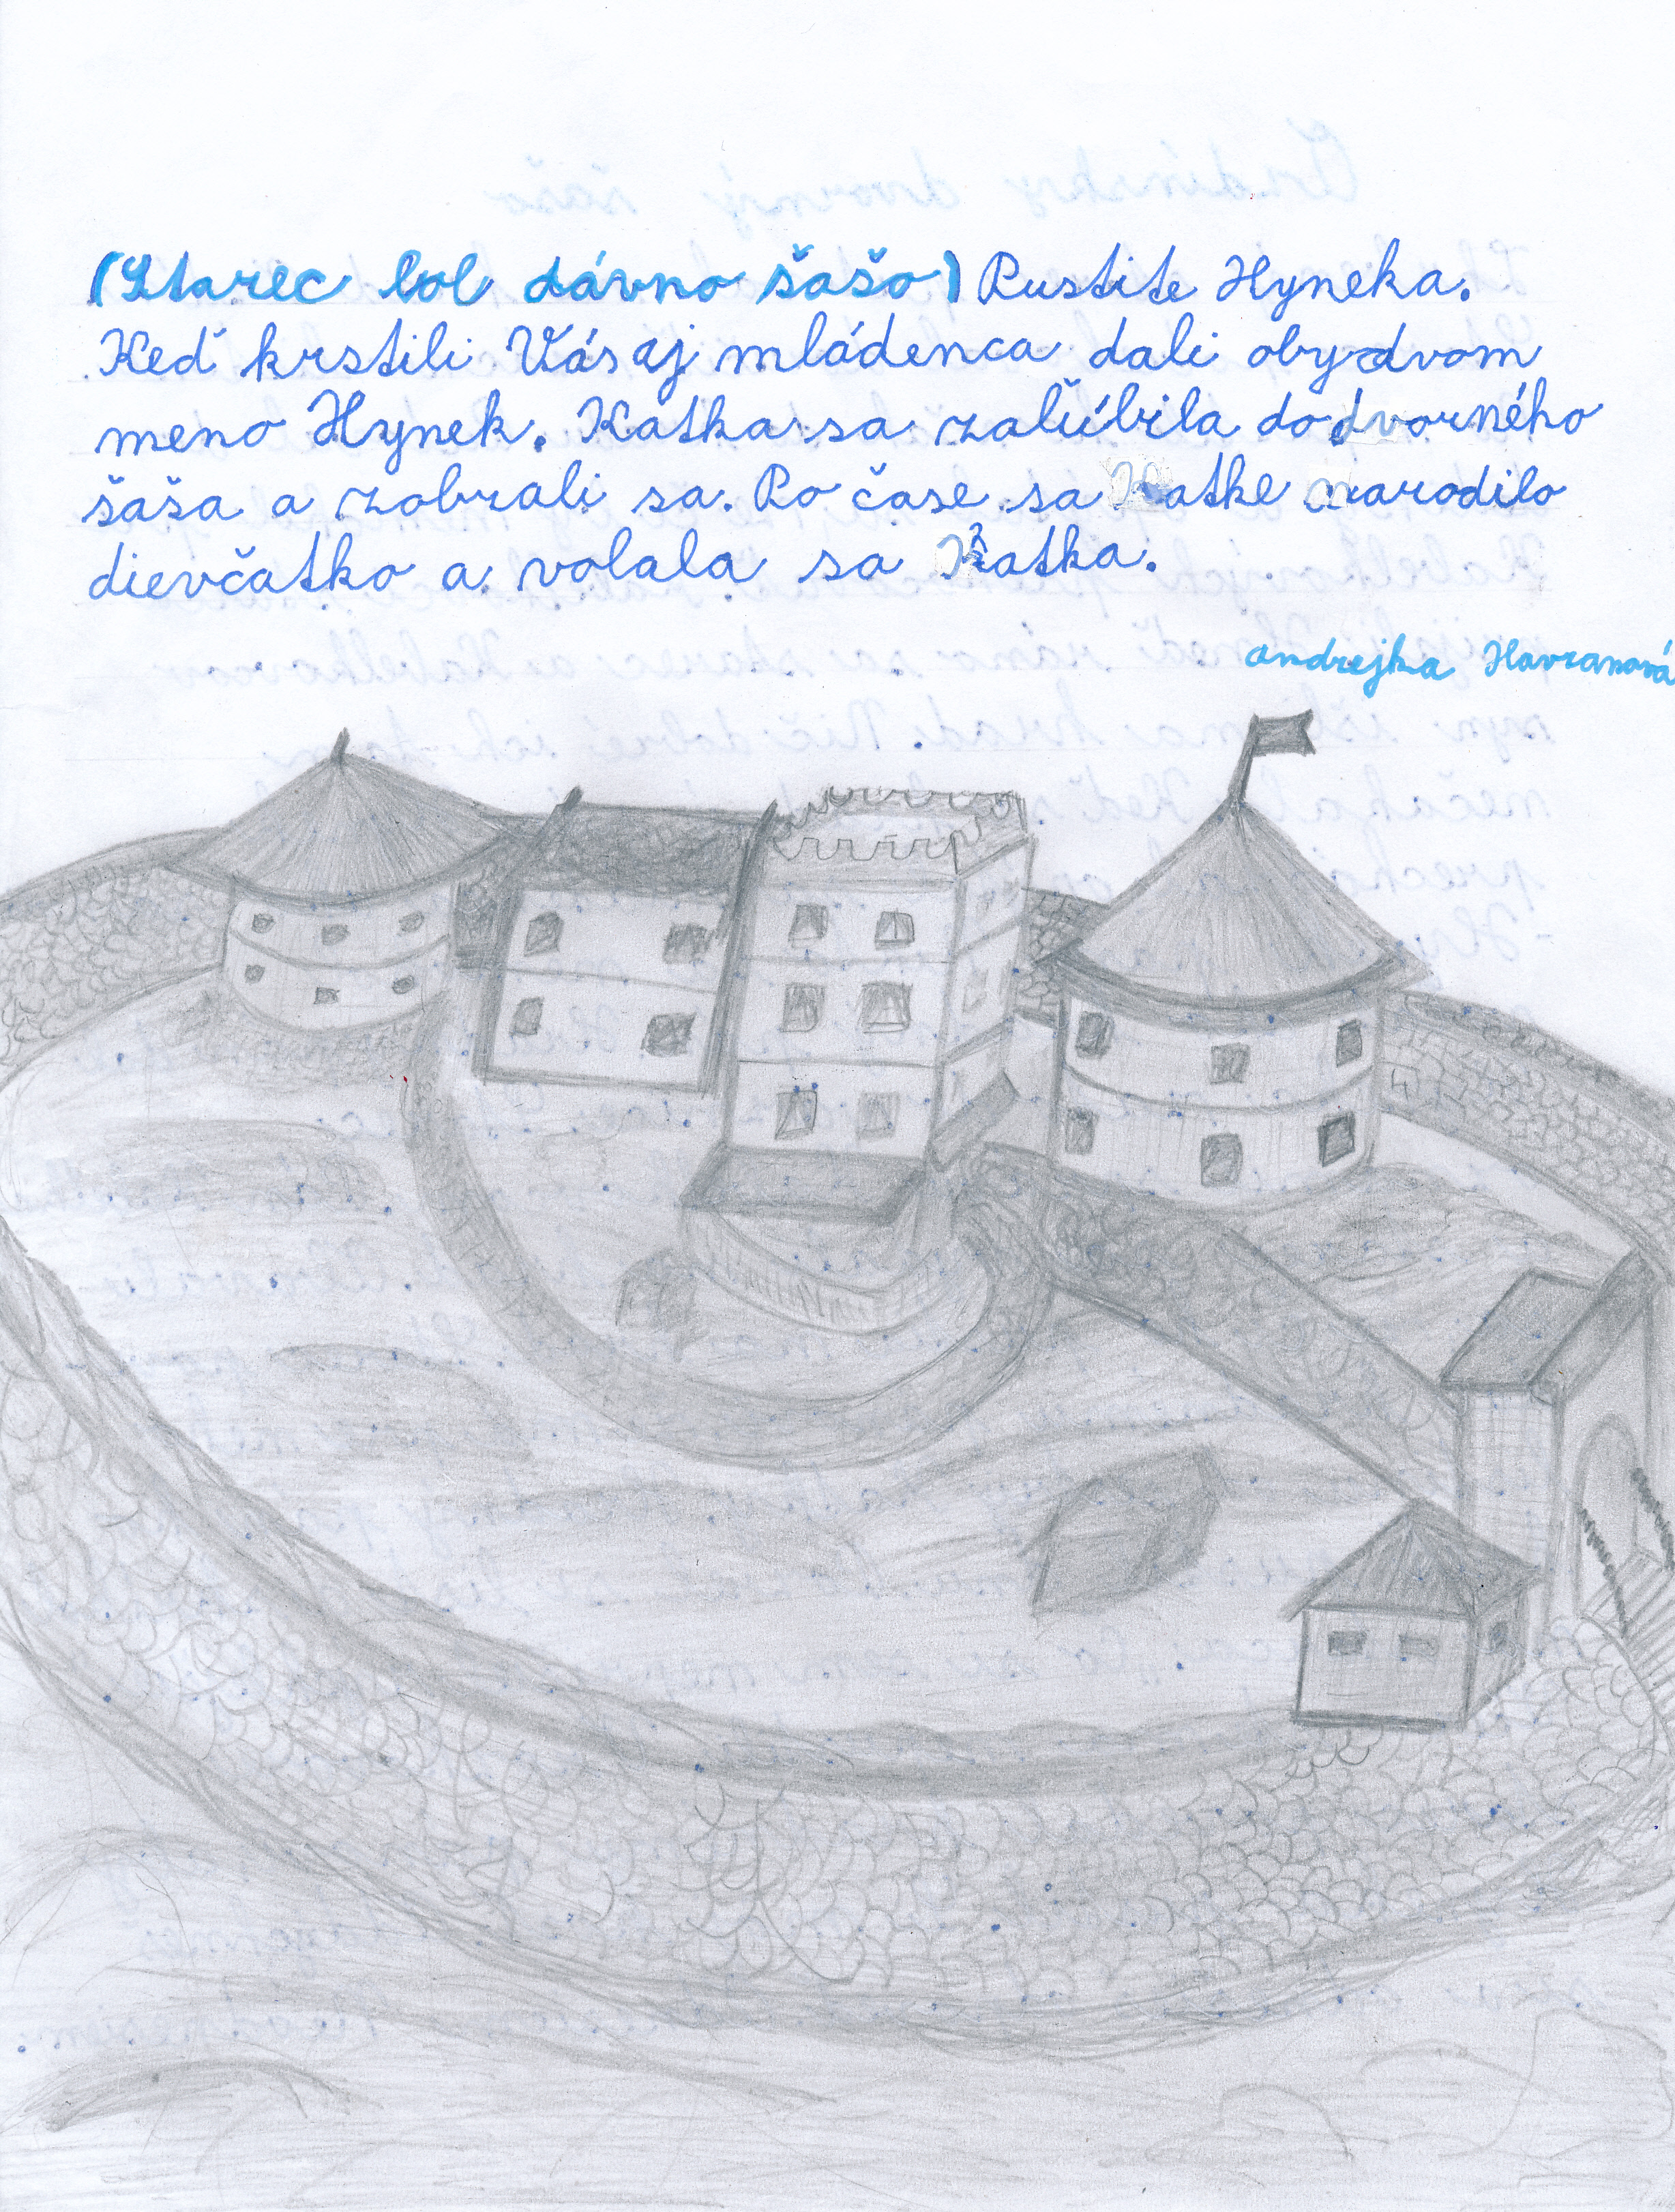 (Starec bol dávno šašo) Pustite Hyneka.
Keď krstili Vás aj mládenca dali obydvom
meno Hynek. Katka sa zaľúbila do dvorného
šaša a zobrali sa. Po čase sa Katke narodilo
dievčatko a volala sa Katka.
Andrejka Havranová